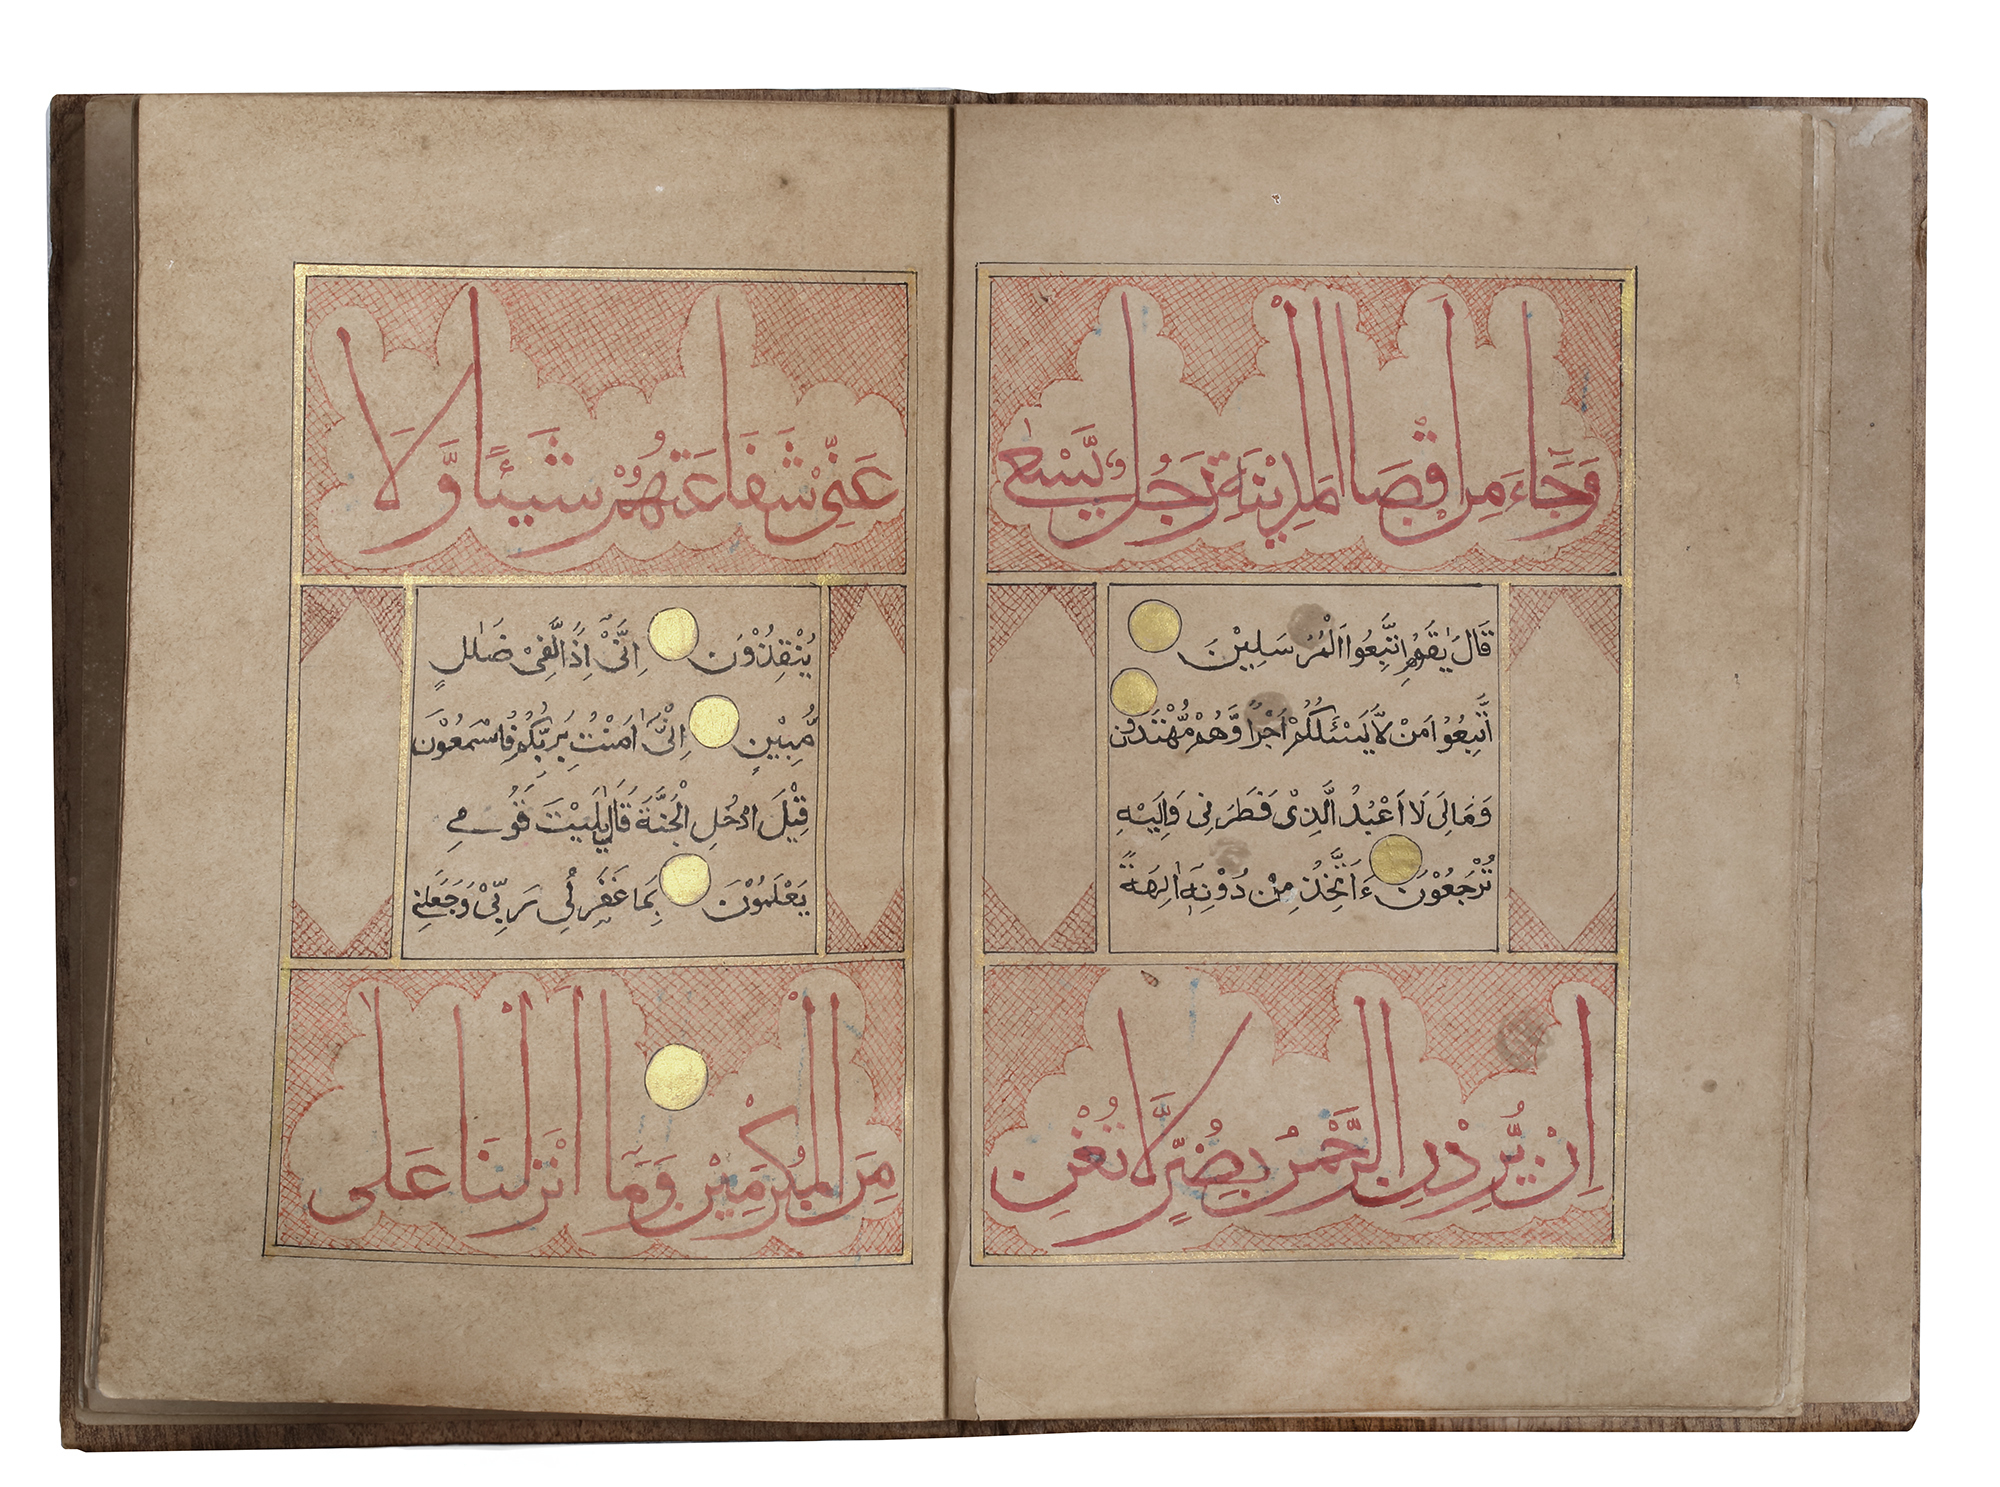 وَجَآءَ مِنْ اَقْصَا الْمَدِيْنَةِ رَجُلٌ يَّسْعٰى
قَالَ يٰقَوْمِ اتَّبِعُوا الْمُرْسَلِيْنَ
اتَّبِعُوْا مَنْ لَّا يَسْـَٔلُكُمْ اَجْرًا وَّهُمْ مُّهْتَدُوْنَ
وَمَا لِىَ لَا اَعْبُدُ الَّذِىْ فَطَرَ نِىْ وَاِلَيْهِ
تُرْجَعُوْنَ ءَاَتَّخِذُ مِنْ دُوْنِهٖ اٰلِهَةً
اِنْ يُّرِدْنِ الرَّحْمٰنُ بِضُرٍّ لَّا تُغْنِ
عَنِّىْ شَفَاعَتُهُمْ شَيْـًٔا وَّلَا
يُنْقِذُوْنَ اِنِّىْٓ اِذًا لَّفِىْ ضَلٰلٍ
مُّبِيْنٍ اِنِّىْٓ اٰمَنْتُ بِرَبِّكُمْ فَاسْمَعُوْنَ
قِيْلَ ادْخُلِ الْجَنَّةَ قَالَ يٰلَيْتَ قَوْمِىْ
يَعْلَمُوْنَ بِمَا غَفَرَ لِىْ رَبِّىْ وَجَعَلَنِىْ
مِنَ الْمُكْرَمِيْنَ وَمَآ اَنْزَلْنَا عَلٰى